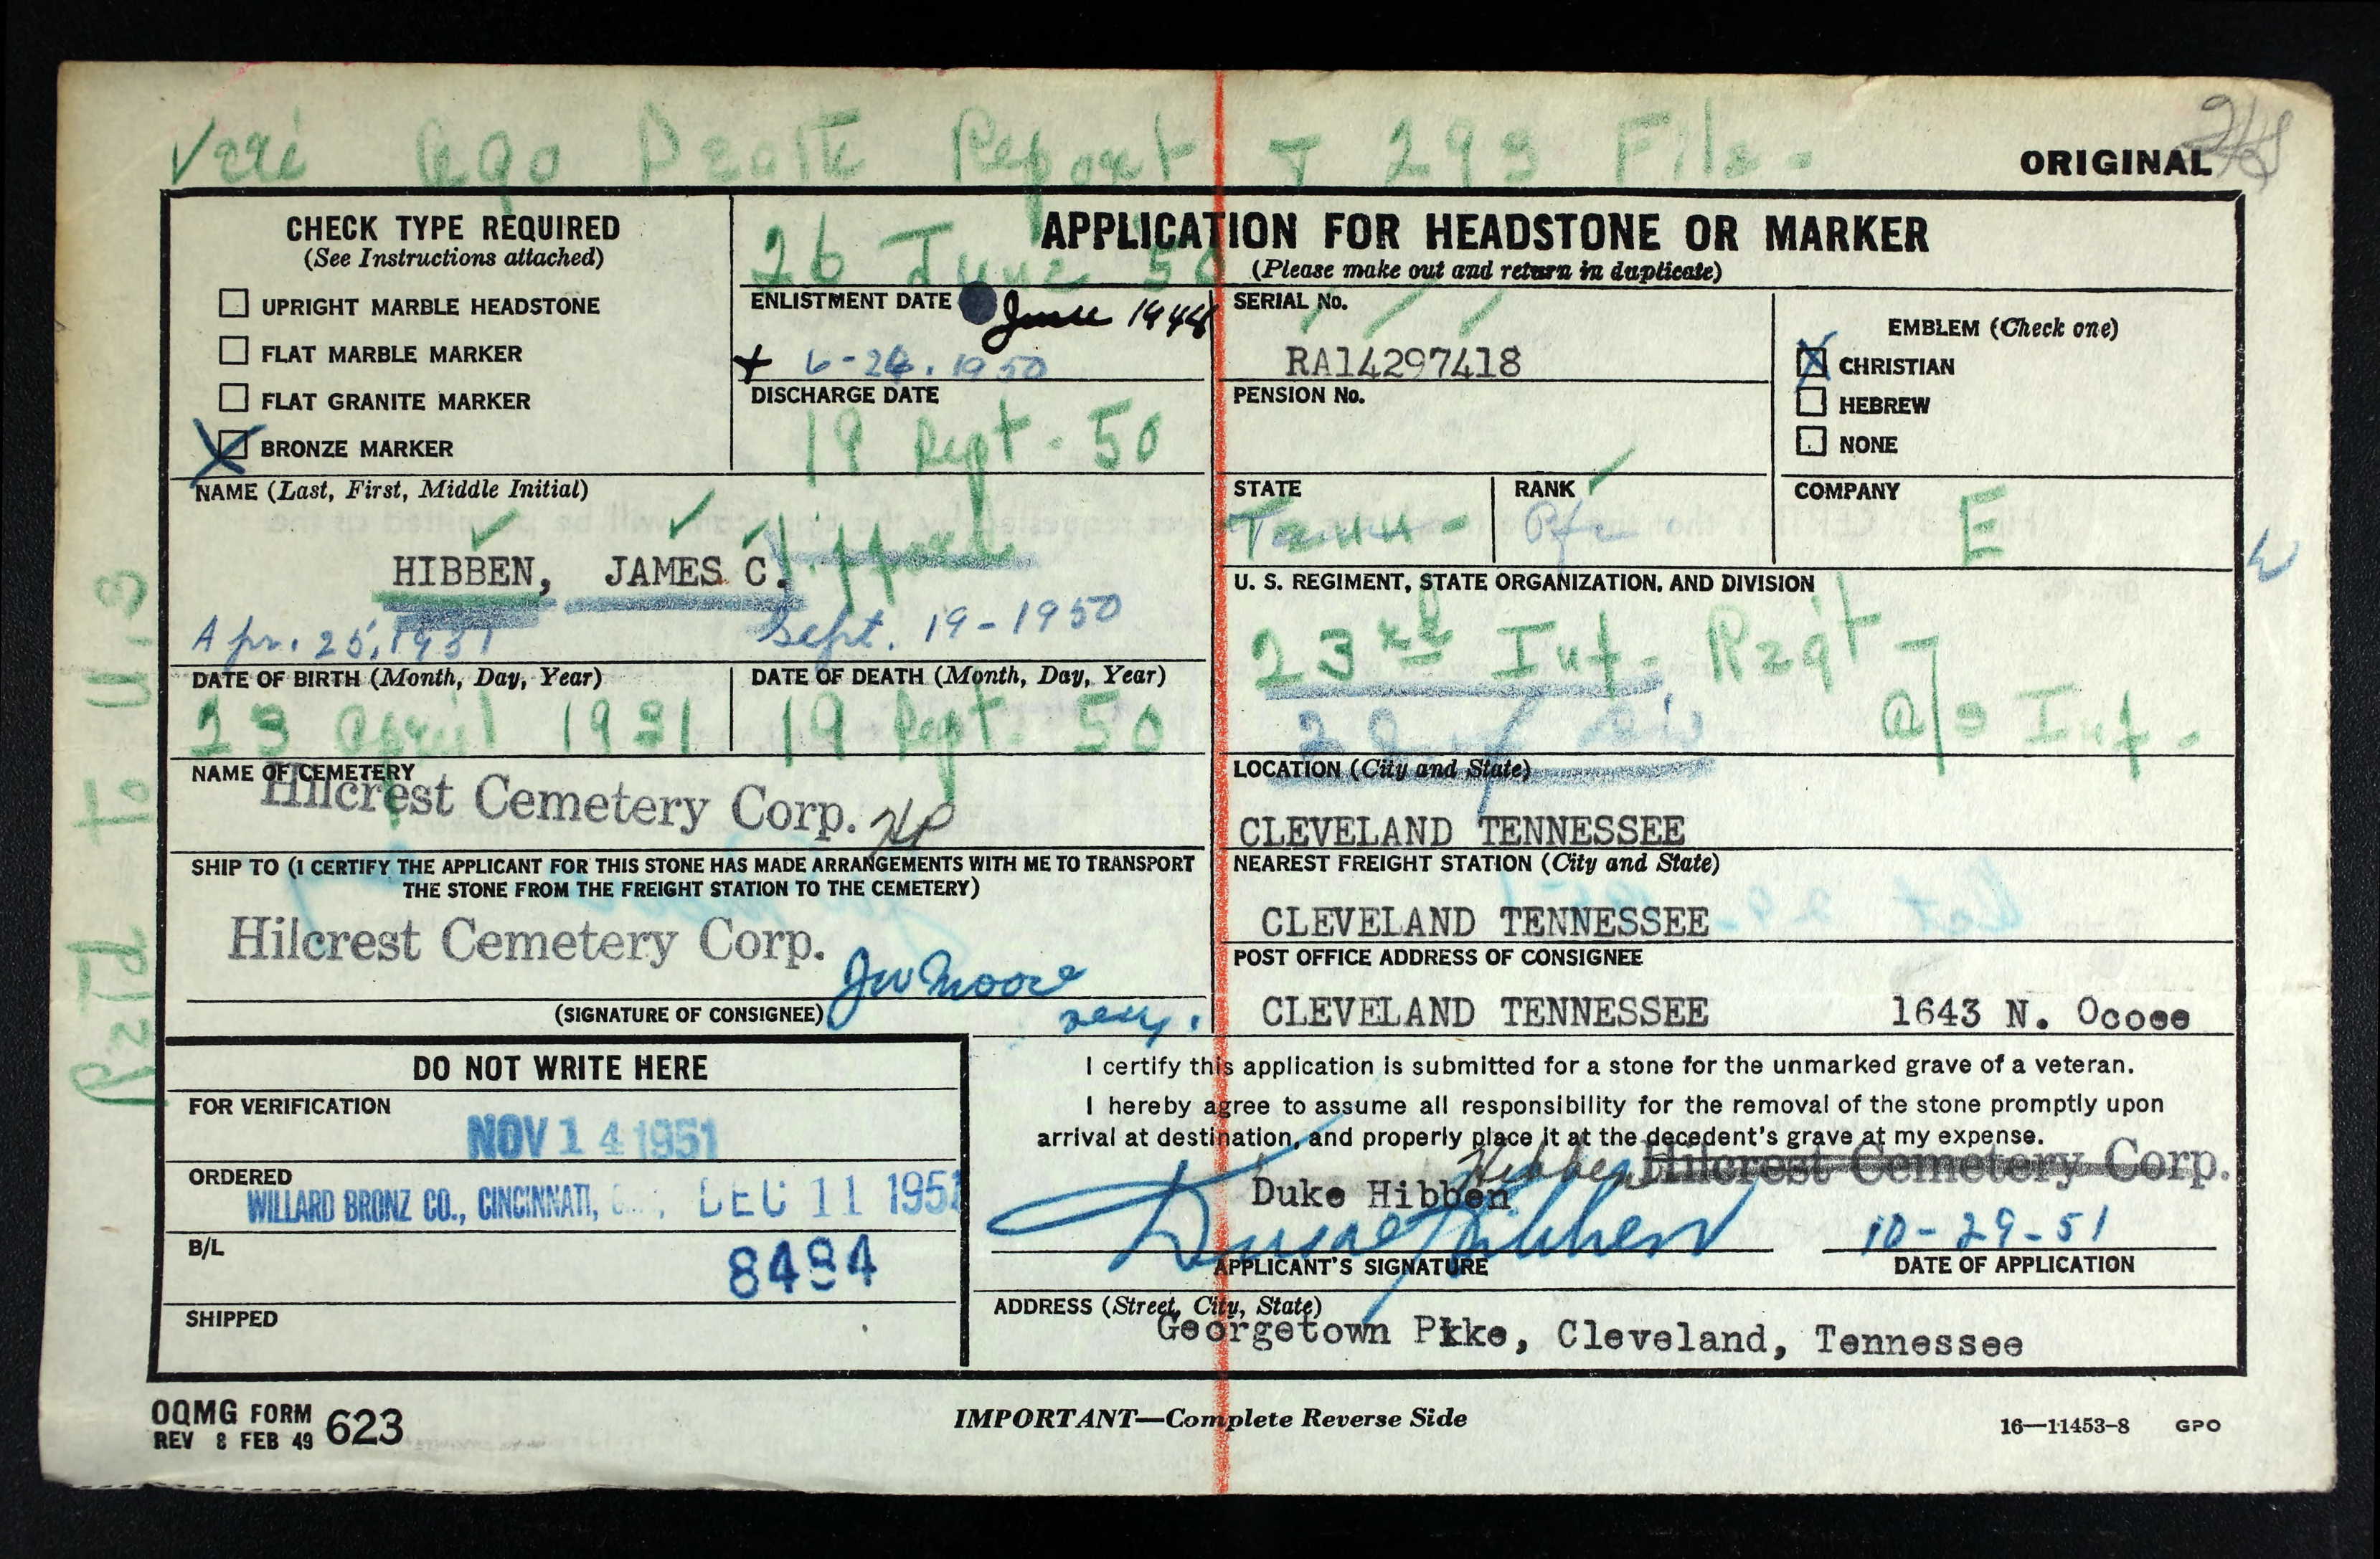 Veri Ago Death Report + 293 File -
ORIGINAL
CHECK TYPE REQUIRED
(See Instructions attached)
UPRIGHT MARBLE HEADSTONE
FLAT MARBLE MARKER
FLAT GRANITE MARKER
X BRONZE MARKER
26 June 50
APPLICATION FOR HEADSTONE OR MARKER
(Please make out and return in duplicate)
ENLISTMENT DATE June 1948
+ 6-26.1950
DISCHARGE DATE
19 Sept - 50
SERIAL No.
RA14297418
PENSION No.
EMBLEM (Check one)
X CHRISTIAN
HEBREW
NONE
NAME (Last, First, Middle Initial)
HIBBEN, JAMES C.
STATE
Tenn -
RANK
Pfc
COMPANY
E
Apr. 25, 1931
Sept. 19-1950
DATE OF BIRTH (Month, Day, Year)
23 April 1931
DATE OF DEATH (Month, Day, Year)
19 Sept. 50
U. S. REGIMENT, STATE ORGANIZATION, AND DIVISION
23rd Inf. Regt -
2 Inf Div
a/o Inf -
NAME OF CEMETERY
Hilcrest Cemetery Corp.
LOCATION (City and State)
CLEVELAND TENNESSEE
SHIP TO (I CERTIFY THE APPLICANT FOR THIS STONE HAS MADE ARRANGEMENTS WITH ME TO TRANSPORT
THE STONE FROM THE FREIGHT STATION TO THE CEMETERY)
Hilcrest Cemetery Corp.
JW Moore
(SIGNATURE OF CONSIGNEE)
NEAREST FREIGHT STATION (City and State)
CLEVELAND TENNESSEE
POST OFFICE ADDRESS OF CONSIGNEE
CLEVELAND TENNESSEE 1643 N. Ocoee
DO NOT WRITE HERE
FOR VERIFICATION
NOV 14 1951
ORDERED
WILLARD BRONZ CO., CINCINNATI, DEC 11 1951
B/L
8494
SHIPPED
I certify this application is submitted for a stone for the unmarked grave of a veteran.
I hereby agree to assume all responsibility for the removal of the stone promptly upon
arrival at destination, and properly place it at the decedent's grave at my expense.
Hibben Hilcrest Cemetery Corp.
Duke Hibben
Duke Hibben
10-29-51
APPLICANT'S SIGNATURE
DATE OF APPLICATION
ADDRESS (Street, City, State)
Georgetown Pike, Cleveland, Tennessee
OQMG FORM 623
REV 8 FEB 49
IMPORTANT—Complete Reverse Side
16—11453-8 GPO